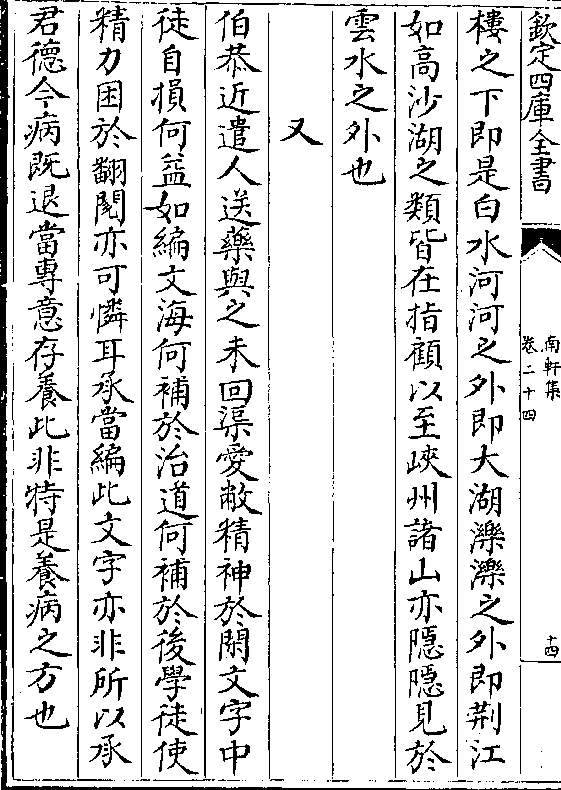 欽定四庫全書
南軒集
卷二十四
十四
樓之下即是白水河河之外即大湖濼濼之外即荆江
如高沙湖之類皆在指顧以至峽州諸山亦隱隱見於
雲水之外也
又
伯恭近遣人送藥與之未回渠愛敝精神於閑文字中
徒自損何益如編文海何補於治道何補於後學徒使
精力困於翻閲亦可憐耳承當編此文字亦非所以承
君德今病既退當專意存養此非特是養病之方也